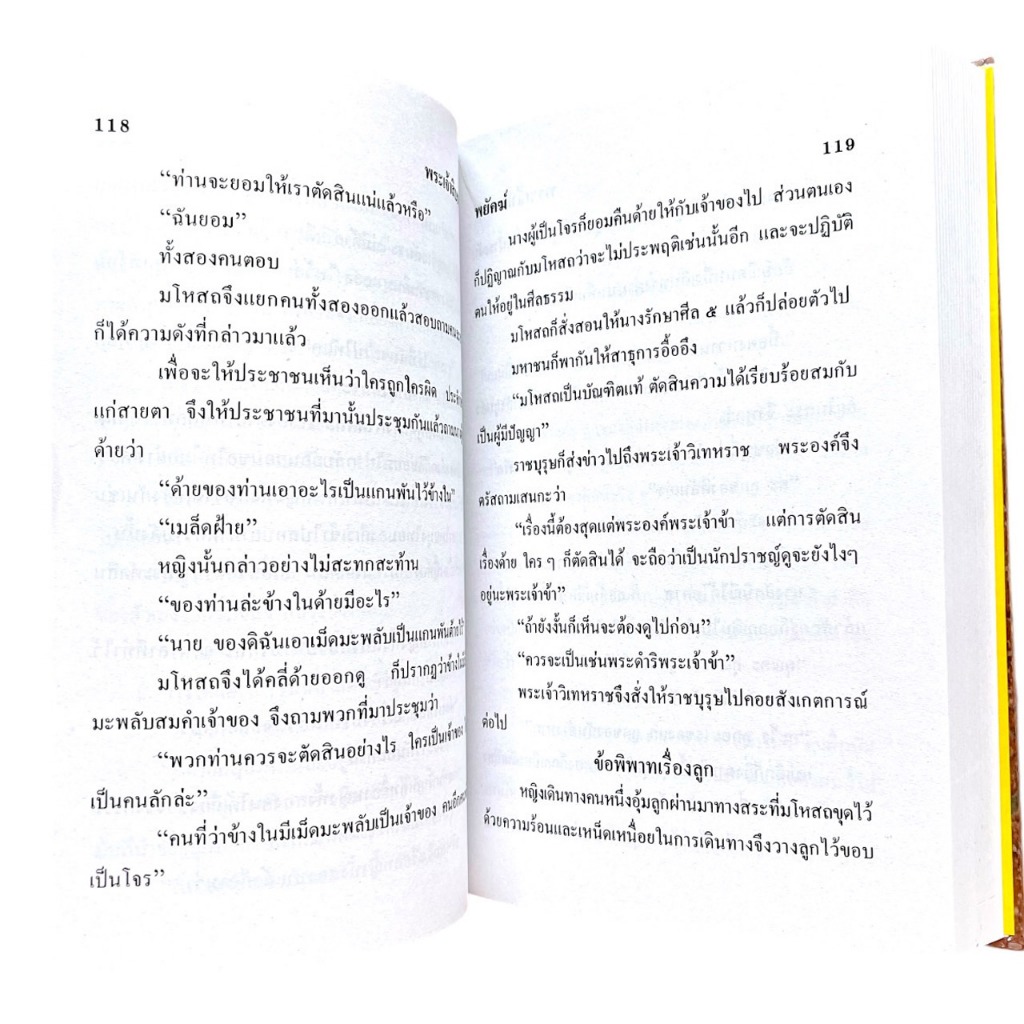 118
“ท่านจะยอมให้เราตัดสินแน่แล้วหรือ”
“ฉันยอม”
ทั้งสองคนตอบ
มโหสถจึงแยกคนทั้งสองออกแล้วสอบถาม
ก็ได้ความดังที่กล่าวมาแล้ว
เพื่อจะให้ประชาชนเห็นว่าใครถูกใครผิด
แก่สายตา จึงให้ประชาชนที่มานั้นประชุมกันแล้วถาม
ด้ายว่า
“ด้ายของท่านเอาอะไรเป็นแกนพันไว้ข้างใน”
“เมล็ดฝ้าย”
หญิงนั้นกล่าวอย่างไม่สะทกสะท้าน
“ของท่านล่ะข้างในด้ายมีอะไร”
“นาย ของดิฉันเอาเม็ดมะพลับเป็นแกนพันด้ายไว้”
มโหสถจึงได้คลี่ด้ายออกดู ก็ปรากฏว่าข้างใน
มะพลับสมคำเจ้าของ จึงถามพวกที่มาประชุมว่า
“พวกท่านควรจะตัดสินอย่างไร ใครเป็นเจ้าของ
เป็นคนลักล่ะ”
“คนที่ว่าข้างในมีเม็ดมะพลับเป็นเจ้าของ
เป็นโจร”
119
พยัคฆ์
นางผู้เป็นโจรก็ยอมคืนด้ายให้กับเจ้าของไป ส่วนตนเอง
ก็ปฏิญาณกับมโหสถว่าจะไม่ประพฤติเช่นนั้นอีก และจะปฏิบัติ
ตนให้อยู่ในศีลธรรม
มโหสถก็สั่งสอนให้นางรักษาศีล ๕ แล้วก็ปล่อยตัวไป
มหาชนก็พากันให้สาธุการอื้ออึง
“มโหสถเป็นบัณฑิตแท้ ตัดสินความได้เรียบร้อยสมกับ
เป็นผู้มีปัญญา”
ราชบุรุษก็ส่งข่าวไปถึงพระเจ้าวิเทหราช พระองค์จึง
ตรัสถามเสนกะว่า
“เรื่องนี้ต้องสุดแต่พระองค์พระเจ้าข้า แต่การตัดสิน
เรื่องด้าย ใคร ๆ ก็ตัดสินได้ จะถือว่าเป็นนักปราชญ์ดูจะยังไงๆ
อยู่นะพระเจ้าข้า”
“ถ้ายังงั้นก็เห็นจะต้องดูไปก่อน”
“ควรจะเป็นเช่นพระดำริพระเจ้าข้า”
พระเจ้าวิเทหราชจึงสั่งให้ราชบุรุษไปคอยสังเกตการณ์
ต่อไป
ข้อพิพาทเรื่องลูก
หญิงเดินทางคนหนึ่งอุ้มลูกผ่านมาทางสระที่มโหสถขุดไว้
ด้วยความร้อนและเหน็ดเหนื่อยในการเดินทางจึงวางลูกไว้ขอบ